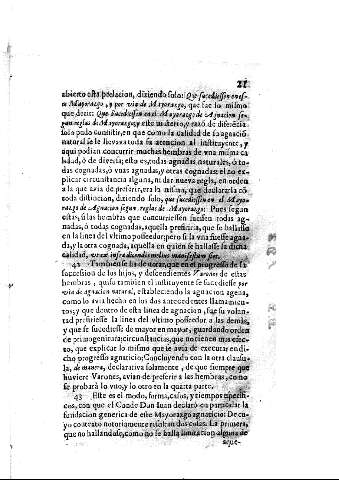 21
abierto esta prelacion, diziendo solo: Que sucediessen en es-
te Mayorazgo, y por via de Mayorazgo, que fue lo mismo
que dezir: Que sucediessen en el Mayorazgo de Agnacion se-
gun reglas de Mayorazgo; y este medio, y razõ de diferẽcia
solo pudo consistir, en que como la calidad de la agnaciõ
natural se lle toda la atencion al instituyente, y
aqui podian concurrir muchas hembras de vna misma ca
lidad, ò de diversa; esto es, todas agnadas naturales, ò to-
das cognadas, ò vnas agnadas, y otras cognadas: el no ex
plicar circunstancia alguna, ni dar nueva regla, en orden
a la que avia de preferir, era lo mismo, que declararla cõ
toda distincion, diziendo solo, que sucediessen en el Mayo-
razgo de Agnacion segun reglas de Mayorazgo: Pues segun
estas, si las hembras que concurriessen fuessen todas ag-
nadas, ò todas cognadas, aquella preferiria, que se hallasse
en la linea del vltimo posseedor; pero si la vna fuesse agna-
da, y la otra cognada, aquella en quien se hallasse la dicha
calidad, vt ex infra dicendis melius manifestum fiet.
42 Tambien se ha de notar, que en el progresso de la
succession de los hijos, y descendientes Varones de estas
hembras, quiso tambien el instituyente se sucediesse por
via de agnacion natural, estableciendo la agnacion agena,
como lo avia hecho en los dos antecedentes llamamien-
tos; y que dentro de esta linea de agnacion, fue su volun-
tad prefiriesse la linea del vltimo posseedor a las demàs,
y que se sucediesse de mayor en mayor, guardando orden
de primogenitura; circunstancias, que no tienen mas efec-
to, que explicar lo mismo que se avia de executar en di-
cho progresso agnaticio; Concluyendo con la otra clausu-
la, de manera, declarativa solamente, de que siempre que
huviere Varones, avian de preferir a las hembras, como
se probarà lo vno, y lo otro en la quarta parte.
43 Este es el modo, forma, casos, y tiempos especifi-
cos, con que el Conde Don Iuan declarò en particular la
fundacion generica de este Mayorazgo agnaticio: De cu-
yo contrato notoriamente resultan dos cosas. La primera,
que no hallandose, como no se halla limitacion alguna de
aque-